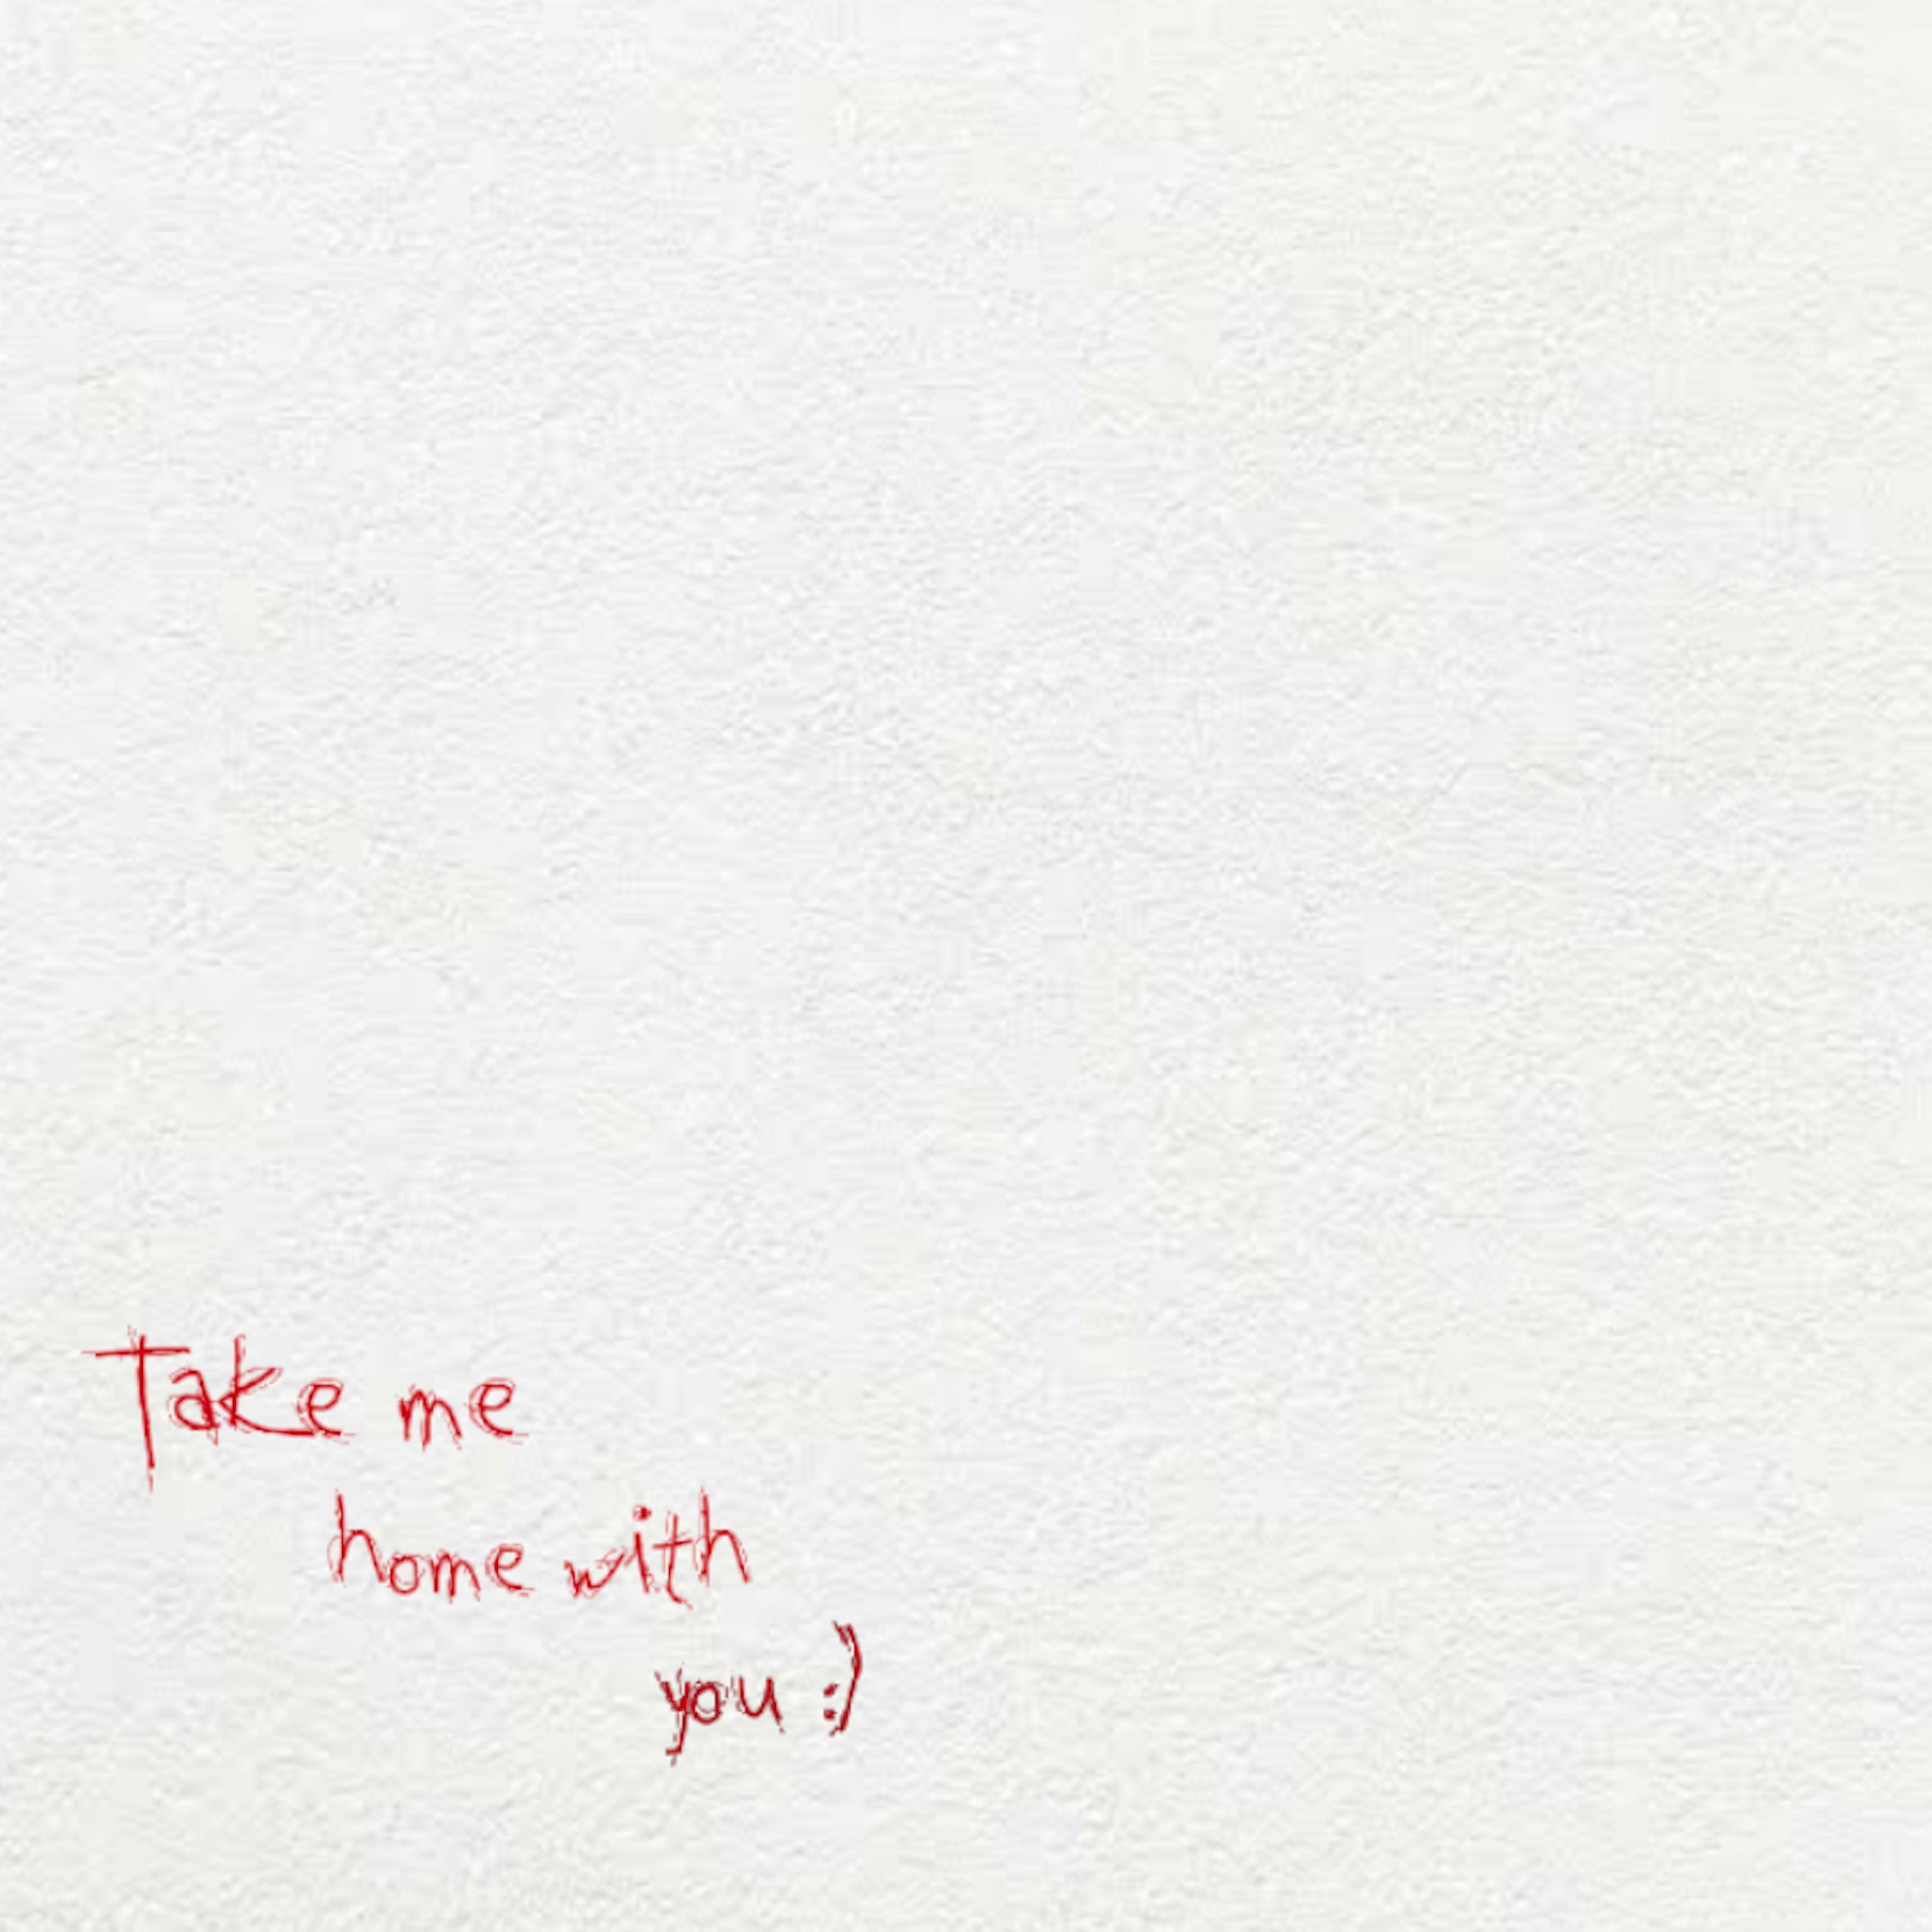 Take me
home with
you :)